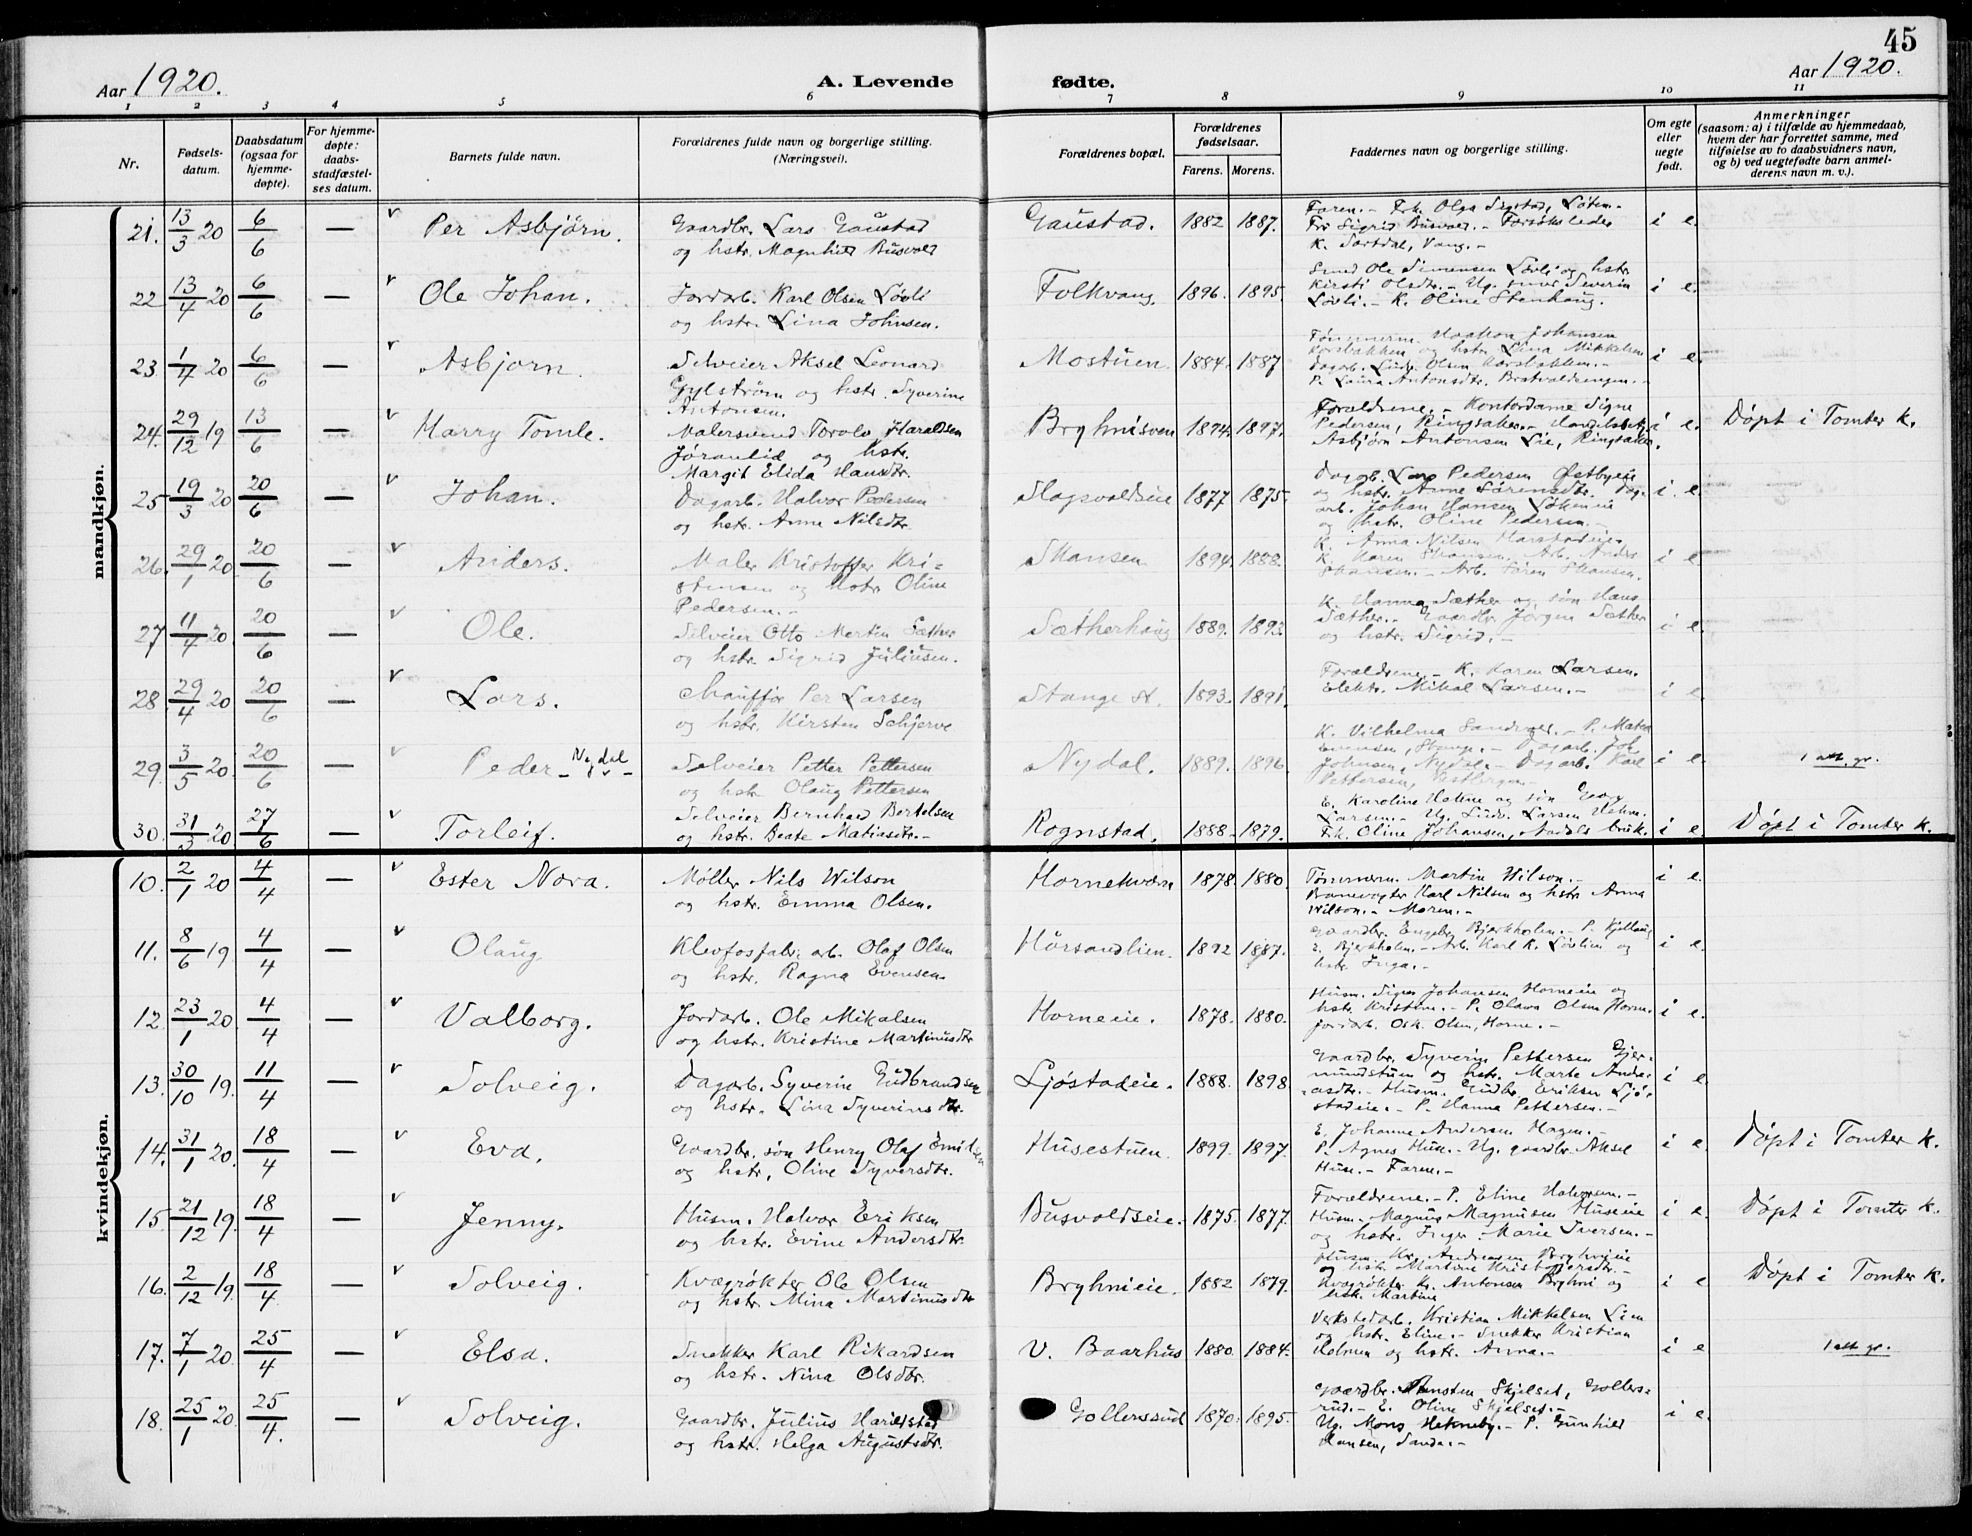 45
Aar 1920. A. Levende fødte. Aar 1920.
1 2 3 4 5 6 7 8 9 10 11
Nr. Fødsels-datum. Daabsdatum (ogsaa for hjemme-døpte). For hjemme-døpte: daabs-stadfæstel-ses datum. Barnets fulde navn. Forældrenes fulde navn og borgerlige stilling. (Næringsvei). Forældrenes bopæl. Forældrenes fødselsaar. Farens. Morens. Faddernes navn og borgerlige stilling. Om egte eller uegte født. Anmerkninger (saasom: a) i tilfælde av hjemmedaab, hvem der har forrettet samme, med tilføielse av to daabsvidners navn, og b) ved uegtefødte barn anmel-derens navn m. v.).
mandkjøn.
21. 13/3 20 6/6 — v Per Asbjørn. Gaardbr. Lars Gaustad Gaustad. 1882 1887. Faren. - Frk. Olga Sigstad, Løten. - i e.
og hstr. Magnhild Busvold Frk Sigrid Busvold. - Forsøksleder
K. Sortdal, Vang. -
22 13/4 20 6/6 — v Ole Johan. Jordarb. Karl Olsen Løvli Folkvang. 1896. 1895. Smed Ole Simensen Løvli og hstr. i e.
og hstr. Lina Johnsen. Kirsti Olsdtr. - Ug. smed Severin
Løvli. - K. Oline Stenhaug.
23 1/4 20 6/6 — v Asbjørn. Selveier Aksel Leonard Mostuen. 1884. 1887 Tømmerm. Haakon Johansen i e.
Gylstrøm og hstr. Syverine Korsbakken og hstr. Lina Mikkelsen
Antonsen. Dagarb. Ludv. Olsen Korsbakken. -
P. Laura Antonsdtr. Bratvoldengen. -
24. 29/12 19 13/6 — v Harry Tomle. Malersvend Torolv Haraldsen Bryhnisven 1894. 1897. Forældrene. - Kontordame Signe i e. Døpt i Tomter k.
Jøranlid og hstr. Pedersen, Ringsaker. - Handelsbetj.
Margit Elida Hansdtr. Asbjørn Antonsen Lie, Ringsaker.
25 19/3 20 20/6 — v Johan. Dagarb. Halvor Pedersen Slagsvoldseie 1877 1875. Dagarb. Lars Pedersen Østbyeie i. e.
og hstr. Anne Nilsdtr. og hstr. Anne Sørensdtr. Dag-
arb. Johan Hansen Løkeneie
og hstr. Oline Pedersen. -
26. 29/1 20 20/6 — v Anders. Maler Kristoffer Kri= Skansen 1894. 1888. K. Anna Nilsen Harstadeie. - i e.
stensen og hstr Oline K. Karen Skansen. Arb. Anders
Pedersen. - Skansen. - Arb. Søren Skansen.
27 11/4 20. 20/6 — v Ole. Selveier Otto Martin Sæther Sætherhaug 1889. 1893. K. Hanna Sæther og søn Hans i e.
og hstr. Sigrid Juliusen. Sæther. - Gaardbr. Jørgen Sæther
og hstr. Sigrid. -
28 29/4 20 20/6 — v Lars. Chauffør Per Larsen Stange st. 1893. 1891. Forældrene. - K. Karen Larsen. i e.
og hstr. Kirsten Schjerve Elektr. Mikal Larsen. -
29. 3/5 20. 20/6 — v Peder Nydal - Selveier Petter Pettersen Nydal. 1889. 1896. K. Vilhelma - P. i e. 1 att. gr.
og hstr Olaug Pettersen Evensen, Stange. - Dagarb. Joh.
Johnsen, Nydal. - Dagarb. Karl
Pettersen, Vestbergen. -
30. 31/3 20 27/6 — Torleif. Selveier Bernhard Bertelsen Rognstad. 1888. 1879. E. Karoline og søn Georg i e. Døpt i Tomter k.
og hstr. Beate Matiasdtr. - Larsen. - Ug. Ludv. Larsen
Frk. Oline Johansen, bruk.
kvindekjøn.
10. 2/1 20 4/4 — v Ester Nora. Møller Nils Wilson Hornekværn 1878. 1880. Tømmerm. Martin Wilson. - i e.
og hstr. Emma Olsen. Banevogter Karl Nilsen og hstr Anna
Wilson. - Moren. -
11. 8/6 19 4/4 — v Olaug Klevfosfabr. arb. Olaf Olsen Hørsandlien. 1892 1887. Gaardbr. Engebr. Bjerkholen. - P. Kjellaug i e.
og hstr. Ragna Evensen. E. Bjerkholen. - Arb. Karl K. Løvlien og
hstr. Inga. -
12. 23/1 20. 4/4 — v Valborg. Jordarb. Ole Mikalsen Horneeie. 1878. 1880. Husm. Johansen Horneeie og i e.
og hstr. Kristine Martinusdtr hstr. Kristine. - P. Olava Olsen Horne.
Jordarb. Osk. Olsen, Horne. -
13. 30/10 19. 11/4 — v Solveig. Dagarb. Syverin Gudbrandsen Ljøstadeie. 1888. 1898. Gaardbr. Syverin Pettersen Gjer= i e.
og hstr. Lina Syverinsdtr. mundstuen og hstr. Marte Anders=
=dtr. - Husm. Gudbr. Eriksen Ljø=
stadeie. - P. Hanna Pettersen. -
14. 31/1 20. 18/4 — v Eva. Gaardbr. søn Henry Olaf Emilsen Husestuen. 1899. 1897. E. Johanne Andersen Hagen. - i e. Døpt i Tomter k.
og hstr. Oline Syversdtr. P. Agnes Huse. - Ug. gaardbr. Aksel
Huse. - Faren. -
15. 21/12 19. 18/4 — v Jenny. Husm. Halvor Eriksen Busvoldseie. 1875. 1877. Forældrene. - P. Eline Halvorsen. - i e. Døpt i Tomter k.
og hstr. Evine Andersdtr. Husm. Magnus Magnusen Huseeie
og hstr. Inger Marie Iversen. -
16. 2/12 19. 18/4 — v Solveig. Kvægrøkter Ole Olsen Bryhnieie. 1882 1879. Husm. Kr. Andreasen Bryhnieie i e Døpt i Tomter k.
og hstr. Mina Martinusdtr og hstr. Martine Kristoffersdtr. -
Kvægrøkter Kr. Antonsen Bryhni og
hstr. Martine
17. 7/1 20. 25/4 — v Elsa. Snekker Karl Rikardsen V. Baarhus 1880. 1884. Verkstedarb. Kristian Mikkelsen Lien i e 1 att. gr.
og hstr. Nina Olsdtr. og hstr. Eline. - Snekker Kristian
Holmen og hstr. Anna. -
18. 25/1 20. 25/4. — v Solveig. Gaardbr. Julius Harildstad Gollersrud 1870. 1895. Gaardbr. Skjelset, Gollers= i e.
og hstr. Helga Augustsdtr. rud. - E. Oline Skjelset. -
Ug. Mons Hekneby. - P. Gunhild
Hansen, Sanda. -